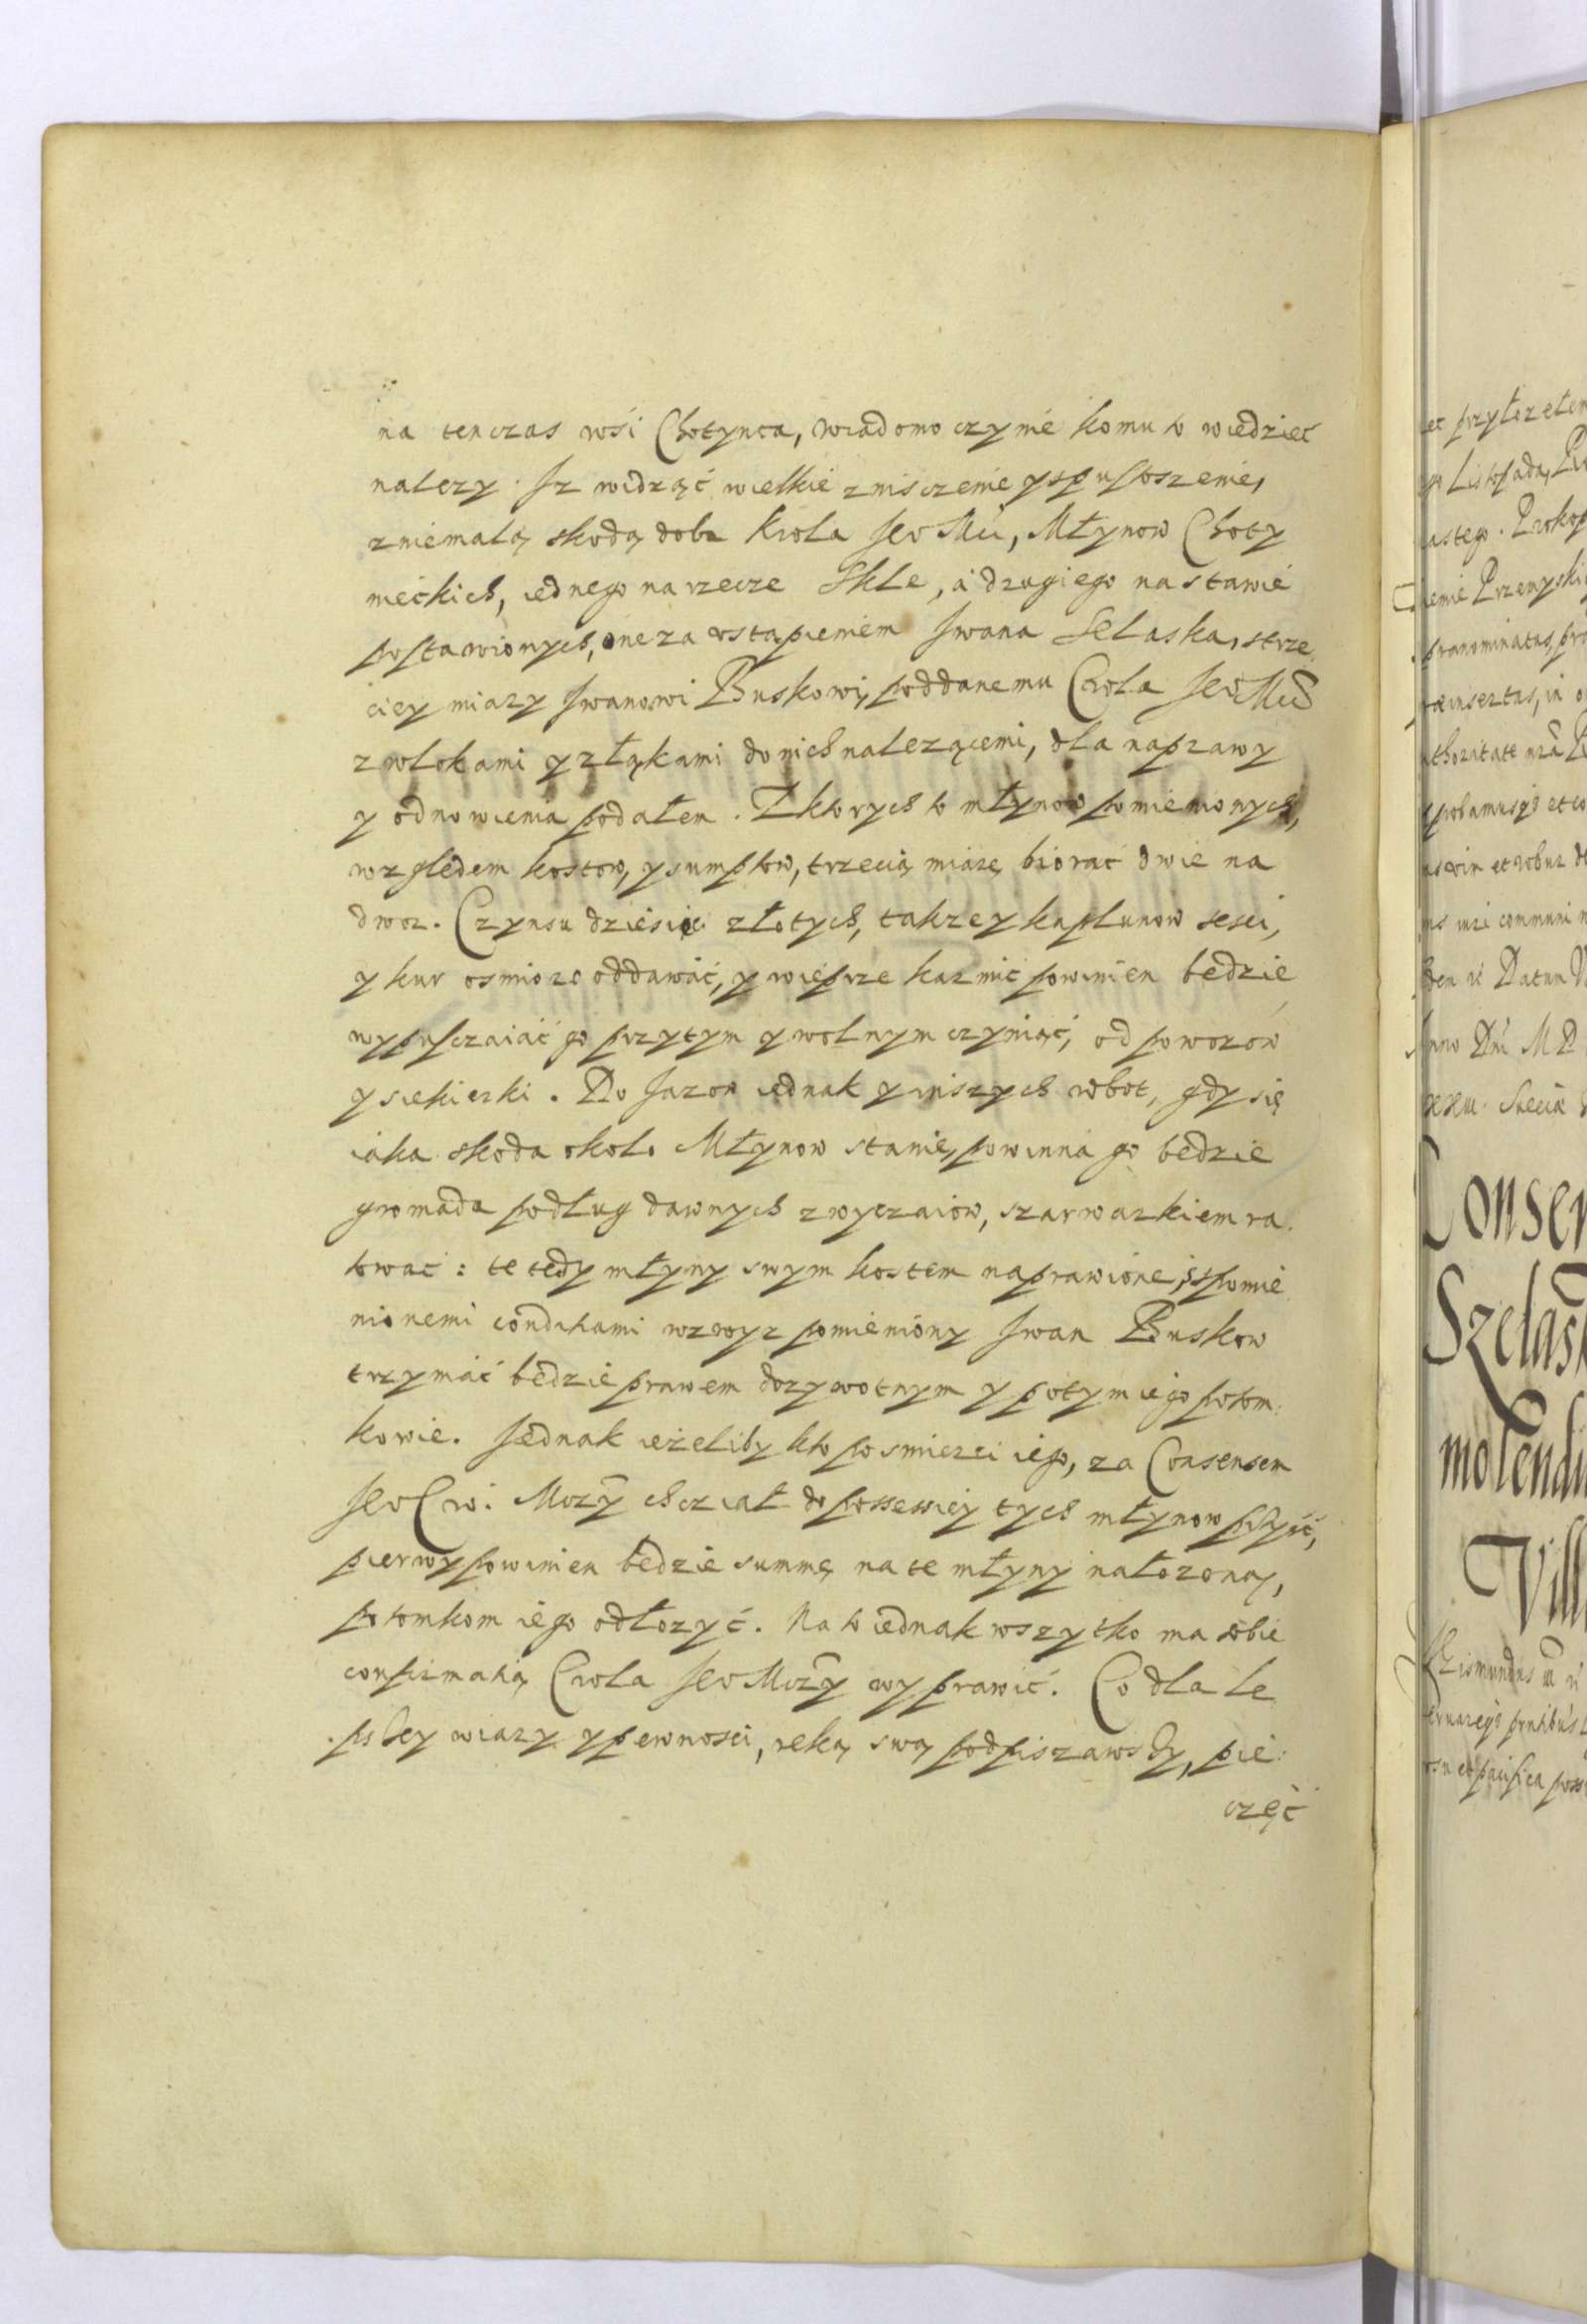 na tenczas wśi Chotynca, wiadomo czynie komu to wiedzieć
nalezy. Iz widząć wielkie zniszczenie y spustoszenie,
zniemałą skodą dobr Krola Jeo Mći, Młynow Choty
nieckich, iednego na rzecze Skle, á drugiego na stawie
postawionych, one za vstąpieniem Iwana Selaska, strze
ciey miary Iwanowi Buskowi, poddanemu Crola Jeo Mći
z wlokami y złąkami do nich nalezącemi, dla naprawy
y odnowienia podałen. Z ktorych to młynow pomienionych,
względem kostow, y sumptow, trzecią miarę biorać dwie na
dwor. Czynsu dziesięc złotych, takze y kapłunow sesci,
y kur osmioro oddawać, y wieprze karmić powinien będzie
wypusczaiać go przytym y wolnym czyniąć, od powozow
y siekierki. Do Jazow iednak y inszych robot, gdy się
iaka skoda okolo Młynow stanie, powinna go będzie
gromada podług dawnych zwyczaiow, szarwarkiem ra
tować: te tedy młyny swym kostem naprawione, s pomie
nionemi conditiami wzwyz pomieniony Iwan Buskow
trzymać będzie prawem dozywotnym y potym iego potom
kowie. Jednak ieżeliby kto po smierci iego, za Consensem
Jeo Crw: Mczy chciał do possessiey tych młynow przyść,
pierwy powinien będzie summę na te młyny nałozoną,
potomkom iego odłozyć. Na to iednak wszytko ma sobie
confirmatią Crola Jeo Mczy wyprawić. Co dla le
pszey wiary y pewnosci, ręką swą podpiszawszy, pie
częć
ec przyłozełem
go Listopada,
astego. Prokop
iemie Przemyski
pranominatas, pro
æinsertas, in
thoritate nrã
probamusqȝ et co
robur
iuri communi
Datum
Anno Dnî MD
Consen
Szelask
molendi
Vill
Sigismundus
et pacifica poss